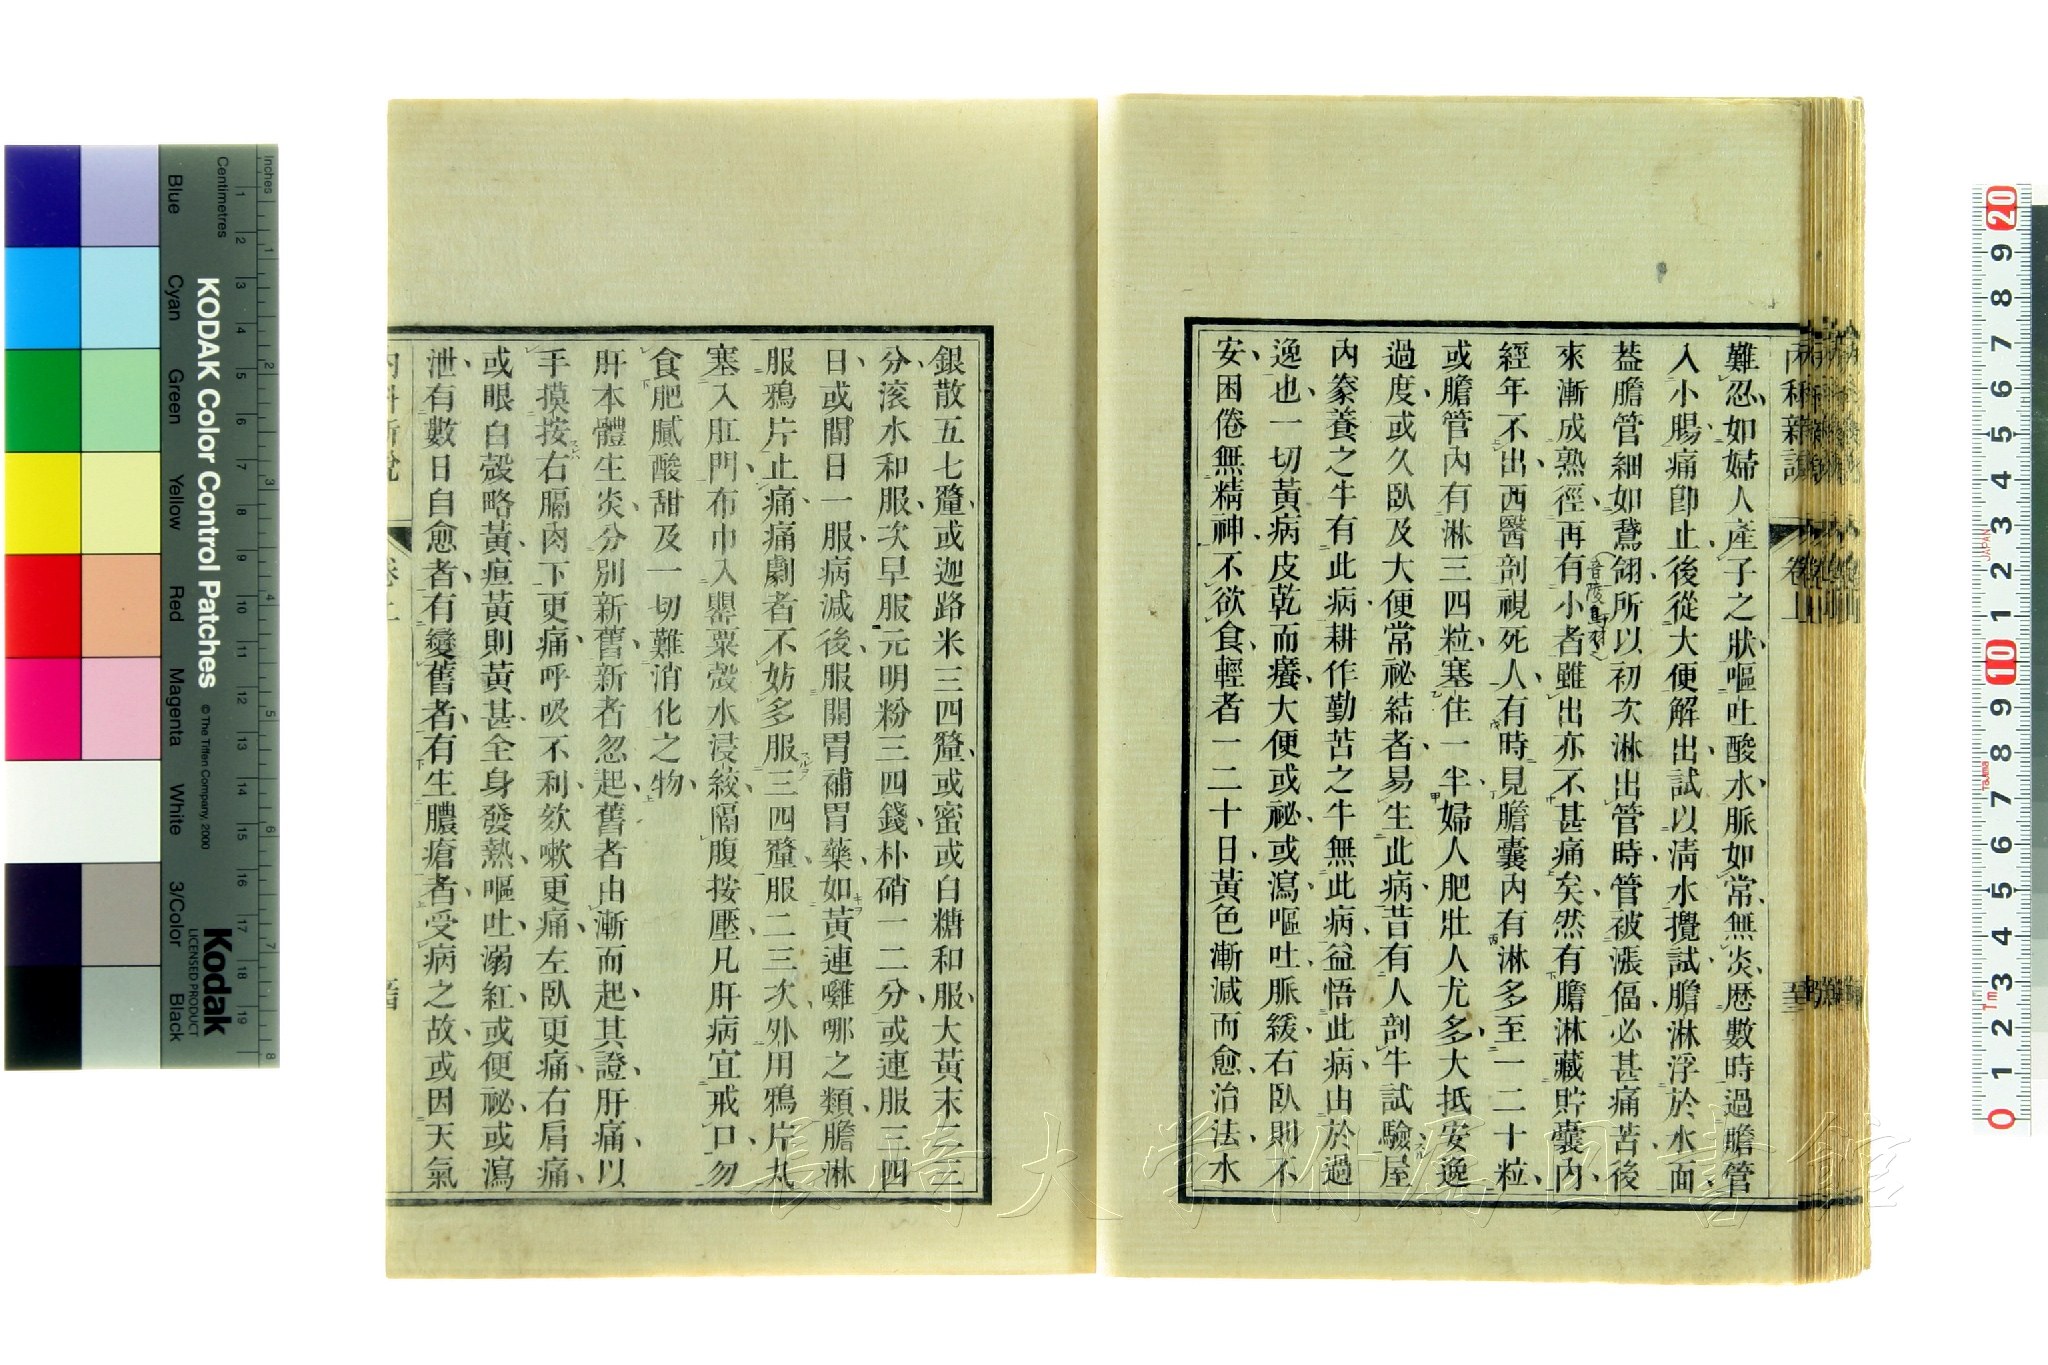 難忍如婦人產子之狀嘔吐酸水脈如常無炎歷數時過膽管
入小腸痛卽止後從大便解出試以淸水攪試膽淋浮於水面
葢膽管細如鵞翎所以初次淋出管時管被漲偪必甚痛苦後
來漸成熟徑再有小者雖出亦不甚痛矣然有膽淋藏貯囊內
經年不出西醫剖視死人有時見膽囊內有淋多至一二十粒
或膽管內有淋三四粒塞住一半婦人肥壯人尤多大抵安逸
過度或久臥及大便常祕結者易生此病昔有人剖牛試驗屋
內豢養之牛有此病耕作勤苦之牛無此病益悟此病由於過
逸也一切黃病皮乾而癢大便或祕或瀉嘔吐脈緩右臥則不
安困倦無精神不欲食輕者一二十日黃色漸減而愈治法水
銀散五七釐或迦路米三四釐或蜜或白糖和服大黃末二三
分滚水和服次早服元明粉三四錢朴硝一二分或連服三四
日或間日一服病減後服開胃補胃藥如黃連囉哪之類膽淋
服鴉片止痛痛劇者不妨多服三四釐服二三次外用鴉片丸
塞入肛門布巾入罌粟殼水浸絞隔腹按壓凡肝病宜戒口勿
食肥膩酸甜及一切難消化之物
肝本體生炎分別新舊新者忽起舊者由漸而起其證肝痛以
手摸按右膈肉下更痛呼吸不利欬嗽更痛左臥更痛右肩痛
或眼白殼略黃疸黃則黃甚全身發熱嘔吐溺紅或便祕或瀉
泄有數日自愈者有變舊者有生膿瘡者受病之故或因天氣
內科新說
卷上
內科新說
卷上
長崎大学附属図書館
KODAK Color Control Patches
© The Tiffen Company, 2000
Kodak
LICENSED PRODUCT
Inches
Centimetres
Blue
Cyan
Green
Yellow
Red
Magenta
White
3/Color
Black